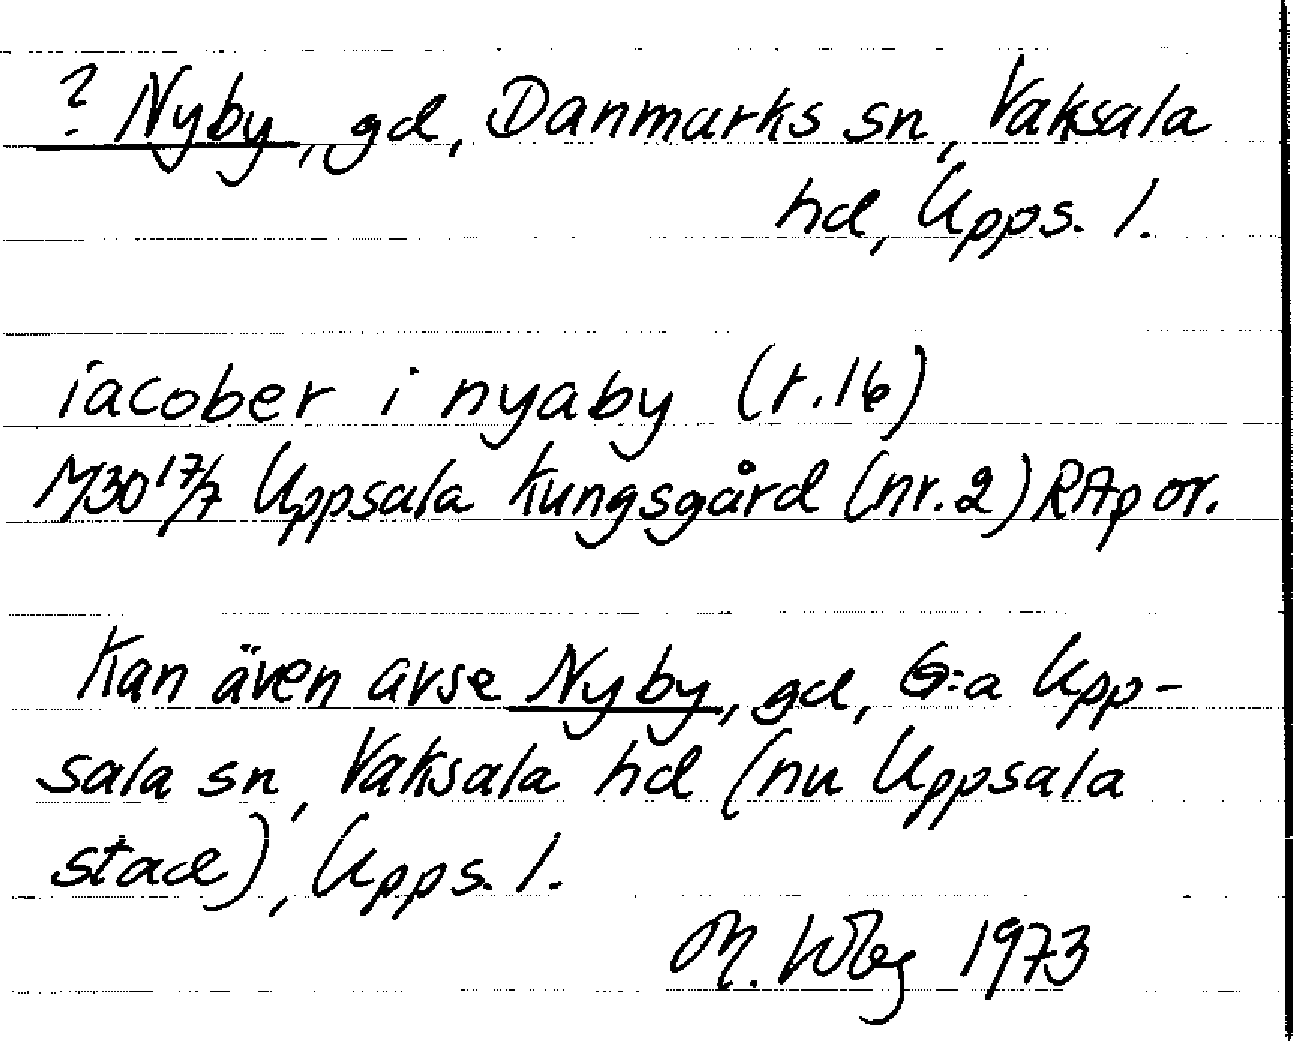 ? Nyby, gd, Danmarks sn, Vaksala
hd, Upps. l.
iacober i nyaby (r.16)
M30 17/7 Uppsala Kungsgård (nr. 2) RAp or.
Kan även avse Nyby, gd, G:a Upp-
sala sn, Vaksala hd (nu Uppsala
stad), Upps. l.
M. 1973